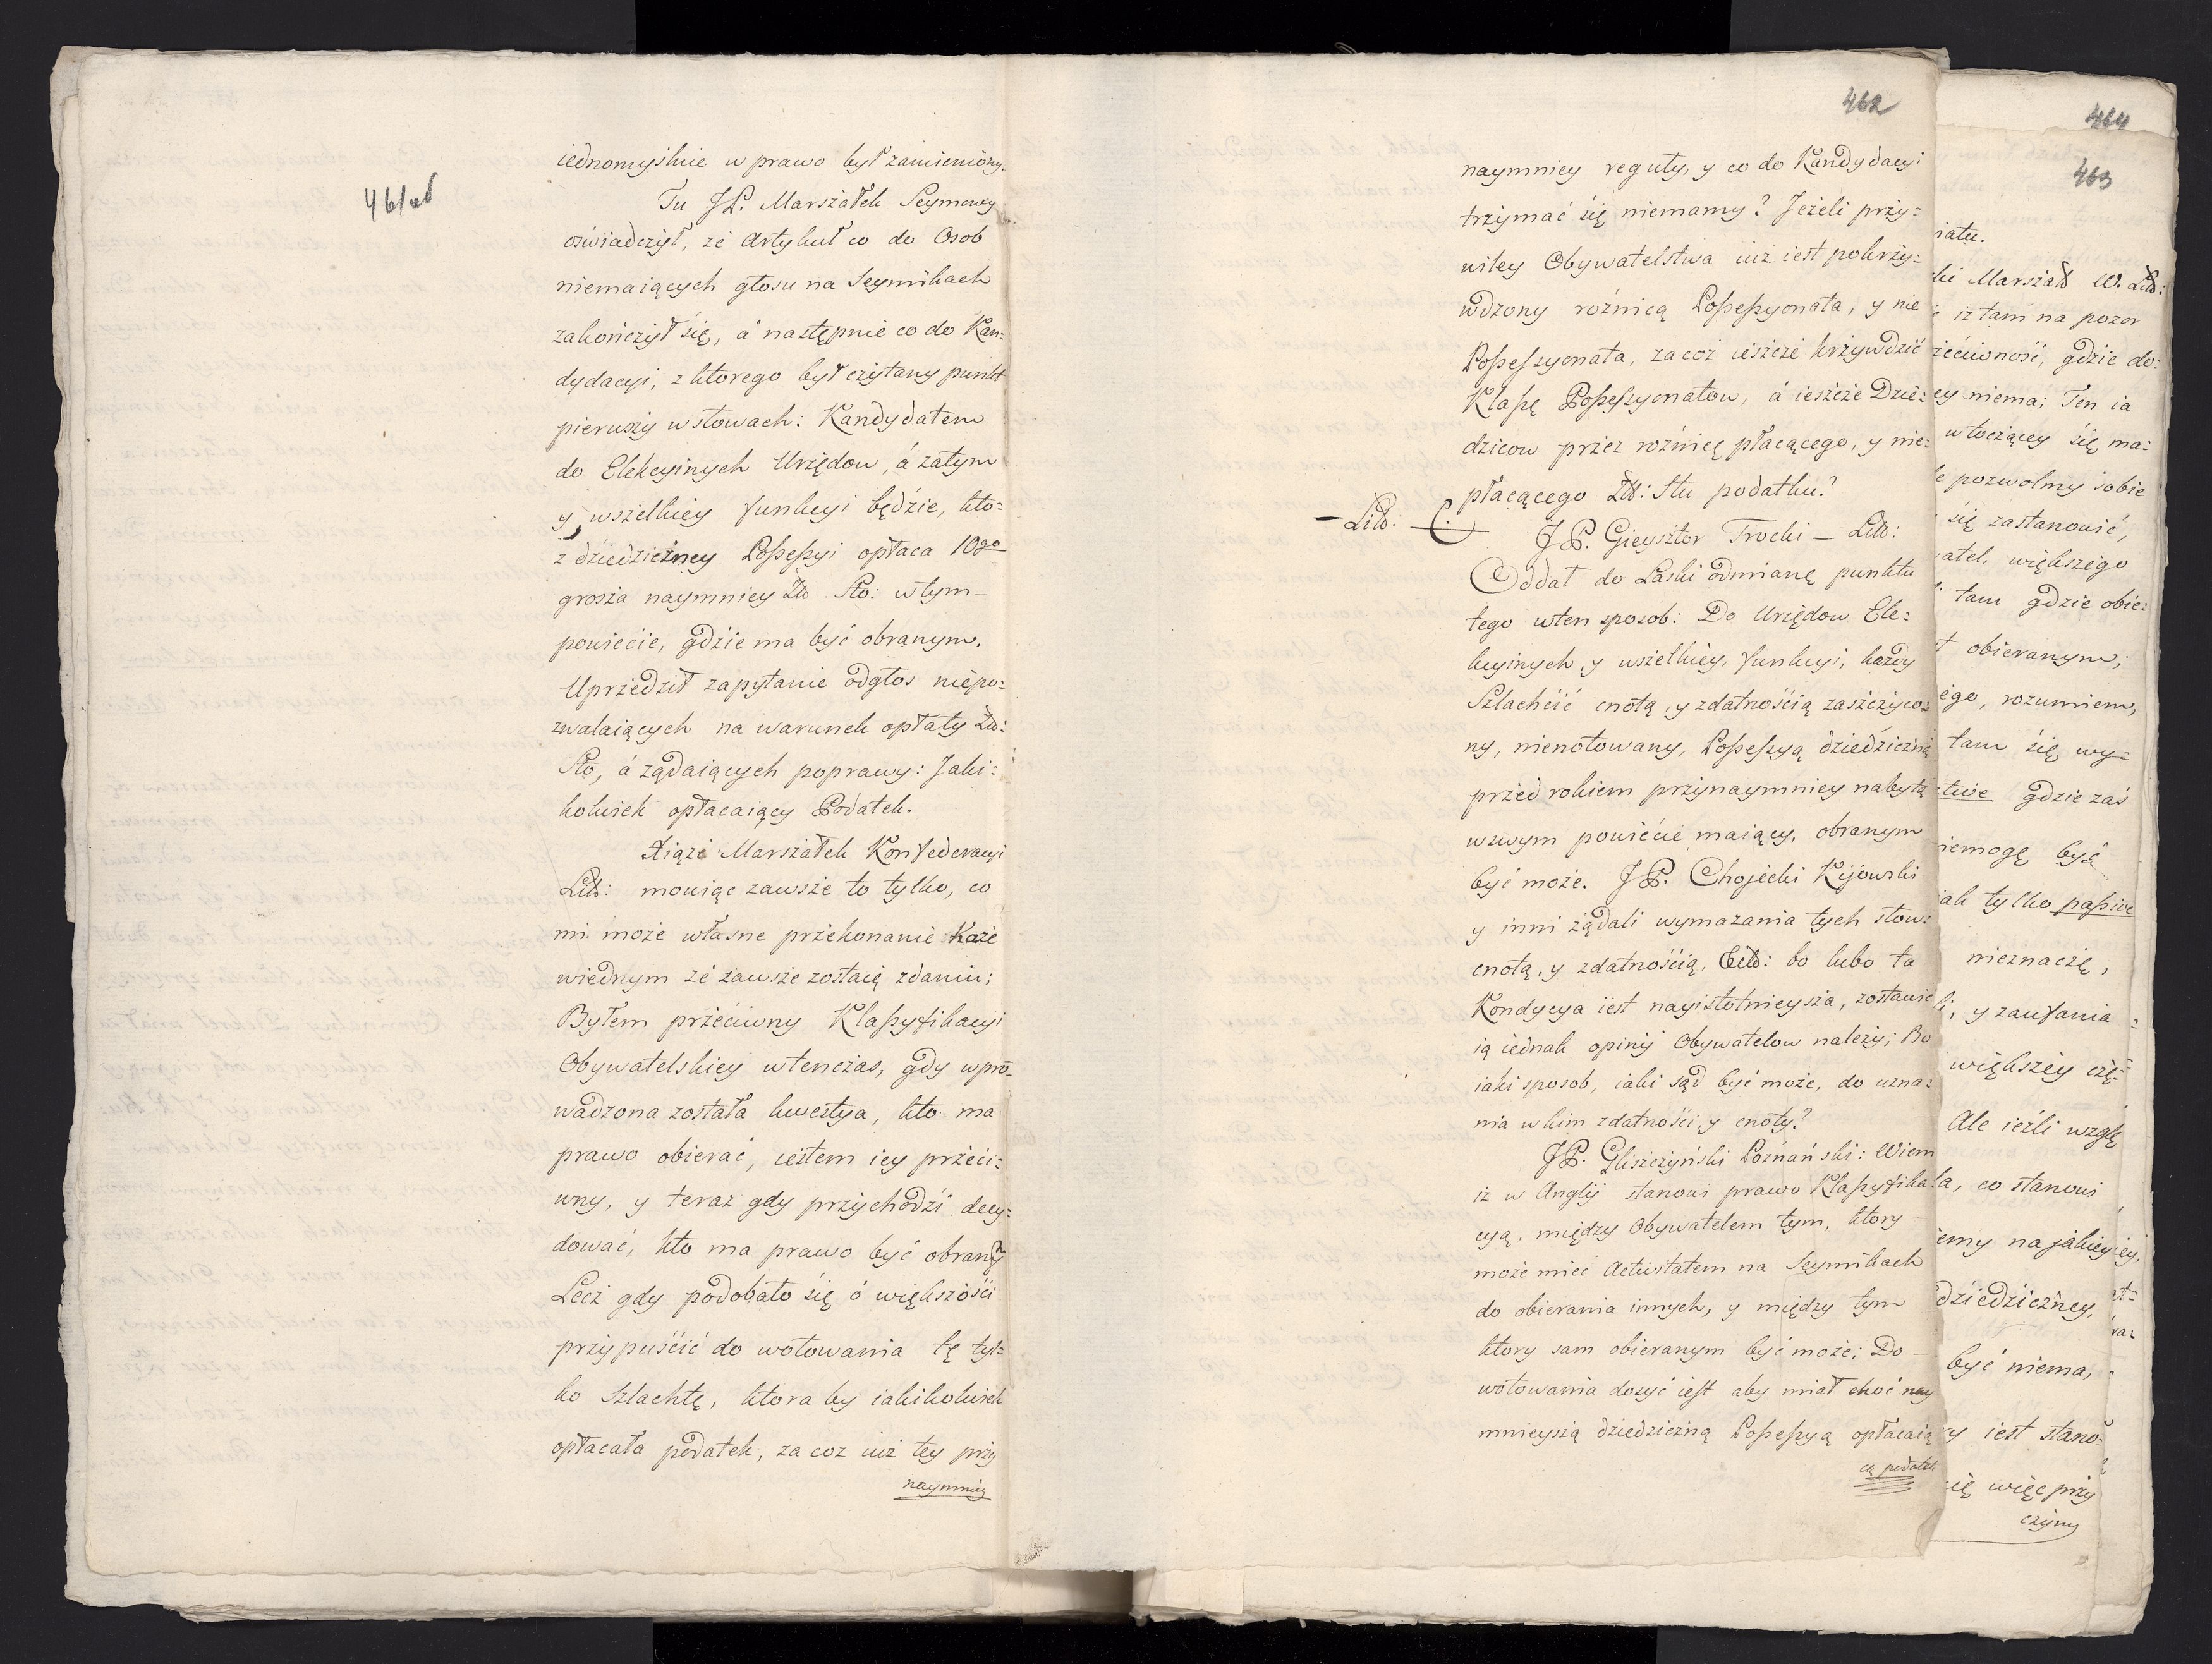 461od
iednomyślnie w prawo był zamieniony.
Tu JP. Marszałek Seymowy
oświadczył, że Artykuł co do Osob
niemaiących głosu na Seymikach
zakończył się, á następnie co do Kan-
dydacyi, z ktorego był czytany punkt
pierwszy w słowach: Kandydatem
do Elekcyinych Urzędow, á zatym
y wszelkiey funkcyi będzie, kto-
z dziedziczney Possessyi opłaca 10go
grosza naymniey Zło Sto: w tym-
powiecie, gdzie ma być obranym.
Uprzedził zapytanie odgłos niepo:
zwalaiących na warunek opłaty Zło:
Sto, á żądaiących poprawy: Jaki=
kolwiek opłacaiący Podatek.
Xiąże Marszałek Konfederacyi
Litt: mowiąc zawsze to tylko, co
mi może własne przekonanie Każe
wiednym że zawsze zostaię zdaniu;
Byłem przeciwny Klassyfikacyi
Obywatelskiey wtenczas, gdy wpro-
wadzona została kwestya, kto ma
prawo obierać, iestem iey przeci=
wny, y teraz gdy przychodzi decy=
dować, kto ma prawo być obrany?
Lecz gdy podobało się ó większości
przypuścić do wotowania tę tyl=
ko Szlachtę, ktora by iakikolwiek
opłacała podatek, za coz iuż tey przy
naymniey
462
naymniey reguły, y co do Kandydacyi
trzymać się niemamy? Jeżeli przy=
wiley Obywatelstwa iuż iest pokrzy=
wdzony roźnicą Possessyonata, y nie
Possessyonata, za coż ieszcze krzywdzić
Klassę Possessyonatow, á ieszcze Dzie=
dzicow przez roźnicę płacącego, y nie=
płacącego Zło: Stu podatku?
— Litt. C.
JP. Gieysztor Trocki — Litt:
Oddał do Laski odmianę punktu
tego w ten sposob: Do Urzędow Ele=
kcyinych y wszelkiey, funkcyi, każdy
Szlachcic cnotą, y zdatnością zaszczyco=
ny, nienotowany, Possessyą dziedziczną
przed rokiem przynaymniey nabytą
w swym powiecie maiący, obranym
być może. JP. Chojecki Kijowski
y inni żądali wymazania tych słow:
cnotą, y zdatnością, bo lubo ta
Kondycya iest nayistotnieysza, zostawić
ią iednak opinij Obywatelow należy; Bo
iaki sposob, iaki sąd być może, do uzna=
nia w kim zdatności y cnoty?
JP. Gliszczyński Poznański: Wiem
iż w Anglij stanowi prawo Klassyfika
cyą, między Obywatelem tym, ktory —
może mieć Activitatem na Seymikach
do obierania innych, y między tym
ktory sam obieranym być może; Do —
wotowania dosyć iest aby miał choć nay
mnieyszą dziedziczną Possessyą opłacaią
cą podatek
464
463
iatu.
ki Marszał W. Litt:
iż tam na pozor
zeciwność, gdzie do=
ey niema; Ten ia
włoczącey się ma=
le pozwolmy sobie
się zastanowić,
atel, większego
tam gdzie obie=
t obieranym;
ego, rozumiem,
tam się wy=
tive gdzie zaś
iemogę być
ak tylko passive
nieznaczę,
i, y zaufania
większey czę=
Ale ieżli wzglę
la, co stanowi
emy na jakiey
dziedziczney,
być niema,
y iest stano=
ię więc przy
czyny